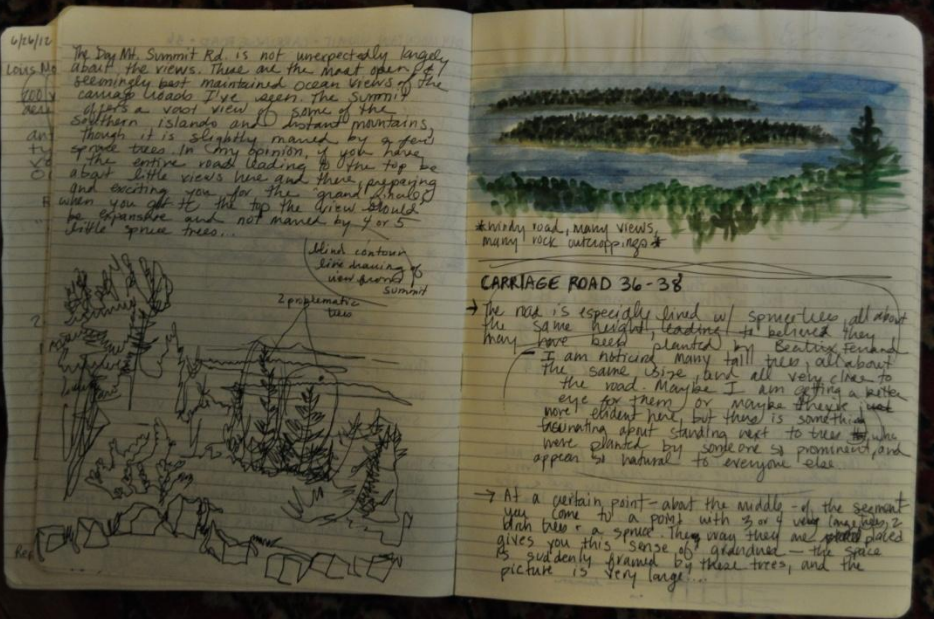 6/26/12
The Day Mt. Summit Rd. is not unexpectedly largely
about the views. These are the most open &
seemingly best maintained ocean views of the
carriage roads I've seen. The summit
offers a vast view of some of the
southern islands and distant mountains,
though it is slightly marred by a few
spruce trees. In my opinion, if you have
the entire road leading to the top be
about little views here and there, preparing
and exciting you for the grand finale,
when you get to the top the view should
be expansive and not marred by 4 or 5
little spruce trees...
blind contour
line drawing of
view from
summit
2 problematic
trees
*windy road, many views,
many rock outcroppings*
CARRIAGE ROAD 36-38
→ The road is especially lined w/ spruce trees, all about
the same height, leading to believe they
may have been planted by Beatrix Ferrand
- I am noticing many tall trees, all about
the same size, and all very close to
the road. Maybe I am getting a better
eye for them or maybe they're just
more evident here, but there is something
fascinating about standing next to trees who
were planted by someone so prominent, and
appear so natural to everyone else
→ At a certain point - about the middle - of the segment
you come to a point with 3 or 4 very large trees, 2
birch trees + a spruce. They way they are placed
gives you this sense of grandeur — the space
is suddenly framed by these trees, and the
picture is very large...